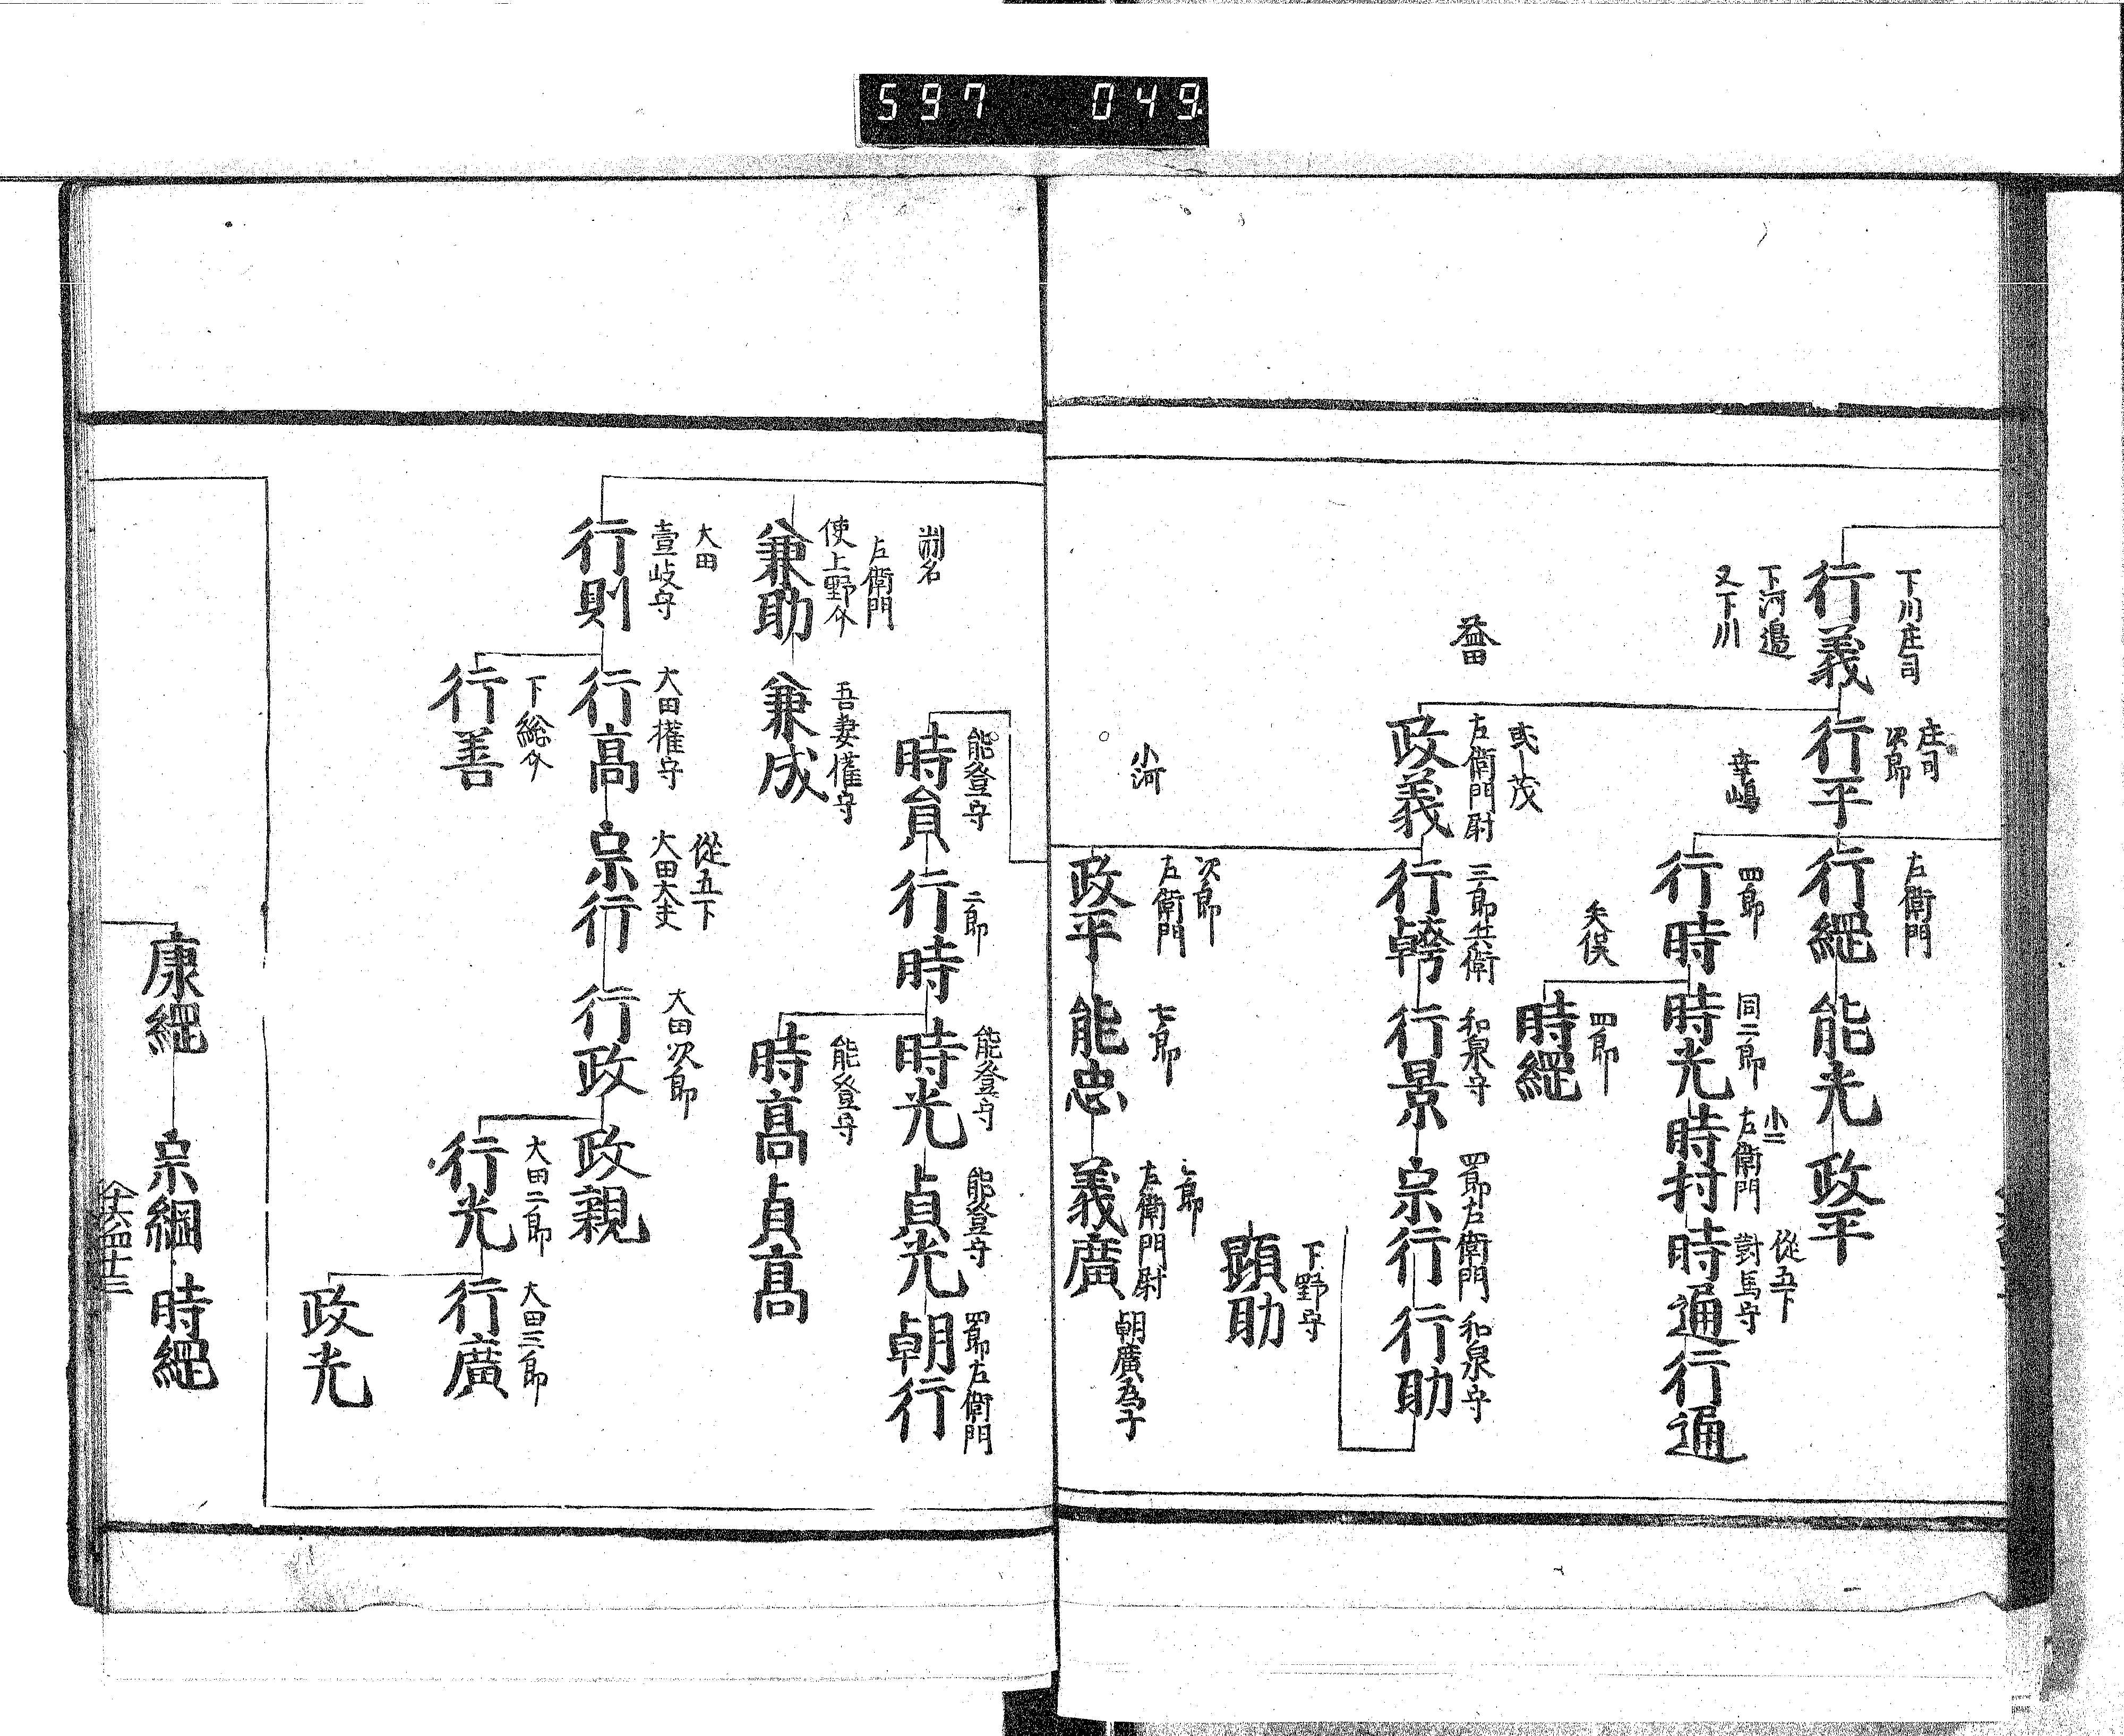 597 049
下川庄司
行義
下河邉
又下川
庄司
次郎
行平
左衛門
行綱
能光
政平
幸嶋
四郎
行時
同二郎
時光
小二
左衛門
時村
從五下
對馬守
時通
行通
矢俣
四郎
時綱
益田
或茂
左衛門尉
政義
三郎兵衛
行幹
和泉守
行景
四郎左衛門
宗行
和泉守
行助
下野守
顕助
小河
次郎
左衛門
政平
七郎
能忠
左衛門尉
義廣
朝廣為子
能登守
時員
二郎
行時
能登守
時光
能登守
貞光
四郎左衛門
朝行
能登守
時高
貞高
渕名
左衛門
使上野介
兼助
吾妻權守
兼成
大田
壹岐守
行則
大田權守
行高
從五下
大田大夫
宗行
大田次郎
行政
政親
下総介
行善
大田二郎
行光
大田三郎
行廣
政光
康綱
宗綱
時綱